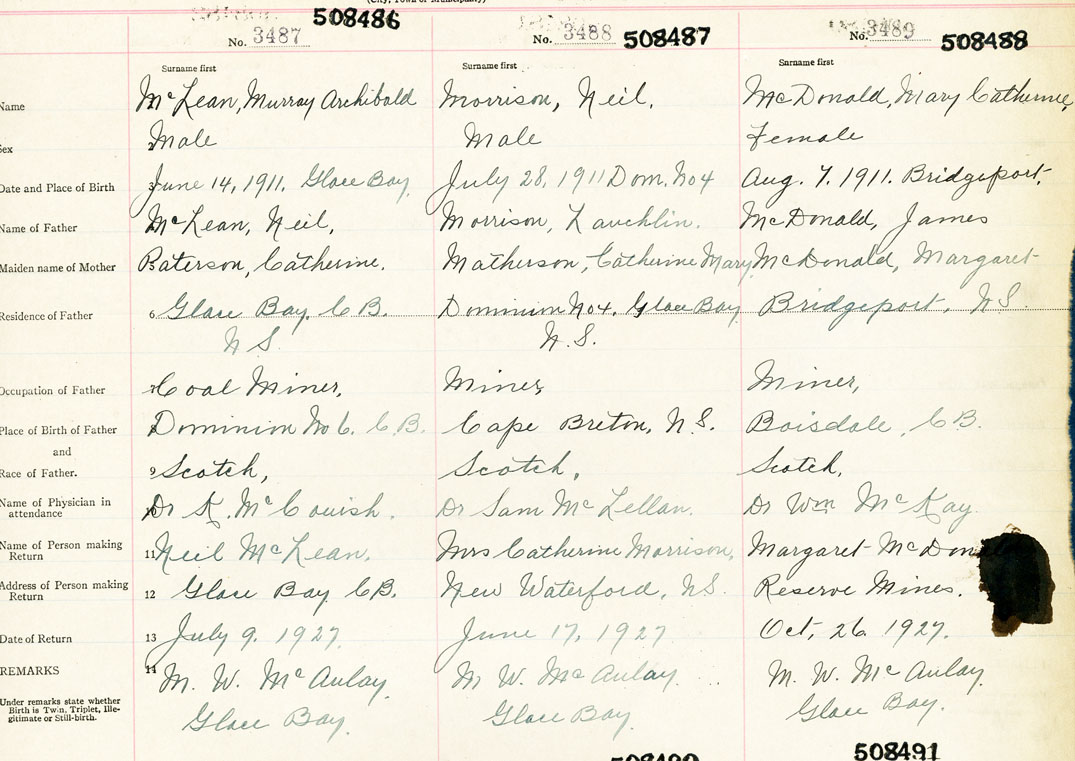 (City, Town or Municipality)
508486 508487 508488
No. 3487 No. 3488 No. 3489
Surname first Surname first Surname first
Name McLean, Murray Archibald Morrison, Neil, McDonald, Mary Catherine,
Sex Male Male Female
Date and Place of Birth 3 June 14, 1911. Glace Bay. July 28, 1911 Dom. No 4 Aug. 7. 1911. Bridgeport.
Name of Father McLean, Neil, Morrison, Lauchlin. McDonald, James
Maiden name of Mother Paterson, Catherine. Matherson, Catherine Mary McDonald, Margaret
Residence of Father 6 Glace Bay, C B. Dominion No 4, Glace Bay Bridgeport, N S.
N S. N. S.
Occupation of Father Coal Miner, Miner, Miner,
Place of Birth of Father Dominion No 6. C. B. Cape Breton, N. S. Boisdale, C B.
and
Race of Father. 9 Scotch, Scotch, Scotch,
Name of Physician in
attendance Dr K. McCouish. Dr Sam McLellan. Dr Wm McKay.
Name of Person making
Return 11 Neil McLean. Mrs Catherine Morrison, Margaret
Address of Person making
Return 12 Glace Bay C B. New Waterford, N S. Reserve Mines.
Date of Return 13 July 9. 1927 June 17, 1927 Oct, 26. 1927.
REMARKS 14 M. W. McAulay. M W. McAulay. M. W. McAulay.
Under remarks state whether
Birth is Twin, Triplet, Ille-
gitimate or Still-birth.
Glace Bay. Glace Bay. Glace Bay.
508490 508491